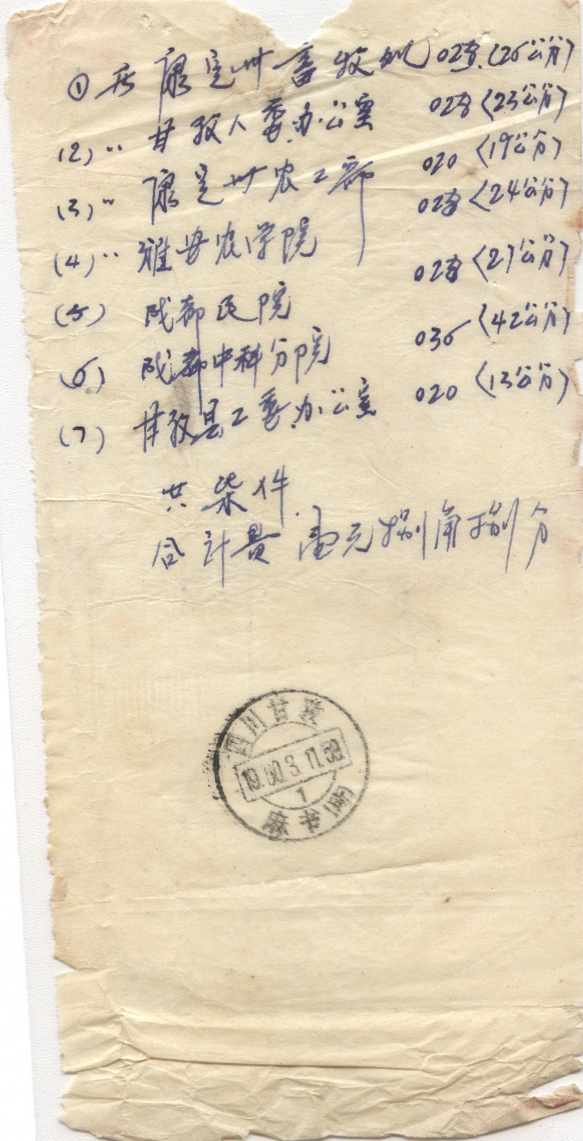 ① 寄 康定州畜牧処 028 (26公分)
(2) " 甘孜人委办公室 028 (23公分)
(3) " 康定州农工部 020 (19公分)
(4) " 雅安农学院 028 (24公分)
(5) 成都民院 028 (27公分)
(6) 成都中科分院 036 (42公分)
(7) 甘孜县工委办公室 020 (13公分)
共柒件
合计费 壹元捌角捌分
四川甘孜
1
麻书